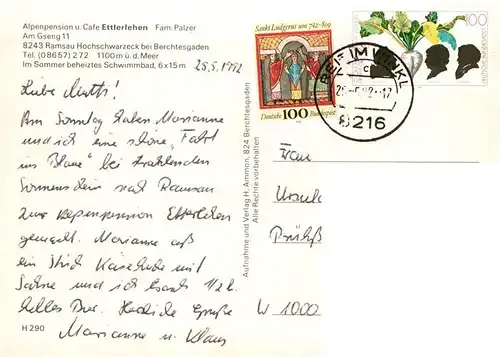 Alpenpension u. Cafe Ettlerlehen Fam. Palzer
Am Gseng 11
8243 Ramsau Hochschwarzeck bei Berchtesgaden
Tel. (08657) 272 1100 m ü. d. Meer
Im Sommer beheiztes Schwimmbad, 6 x 15 m
25.5.1992
Liebe Mutti!
Am Sonntag haben Marianne
und ich eine schöne "Fahrt
ins Blaue" bei strahlendem
Sonnenschein nach Ramsau
zur Alpenpension Ettlerlehen
gemacht. Marianne aß
ein Stück Käsetorte mit
Sahne und ich trank 1/2 l
helles Bier. Herzliche Grüße
Marianne u. Klaus
H 290
Aufnahme und Verlag H. Ammon, 824 Berchtesgaden
Alle Rechte vorbehalten
Sankt Ludgerus um 742-809
Deutsche 100 Bundespost
100
REIT IM WINKL
8216
Frau
Ursula
W 1000